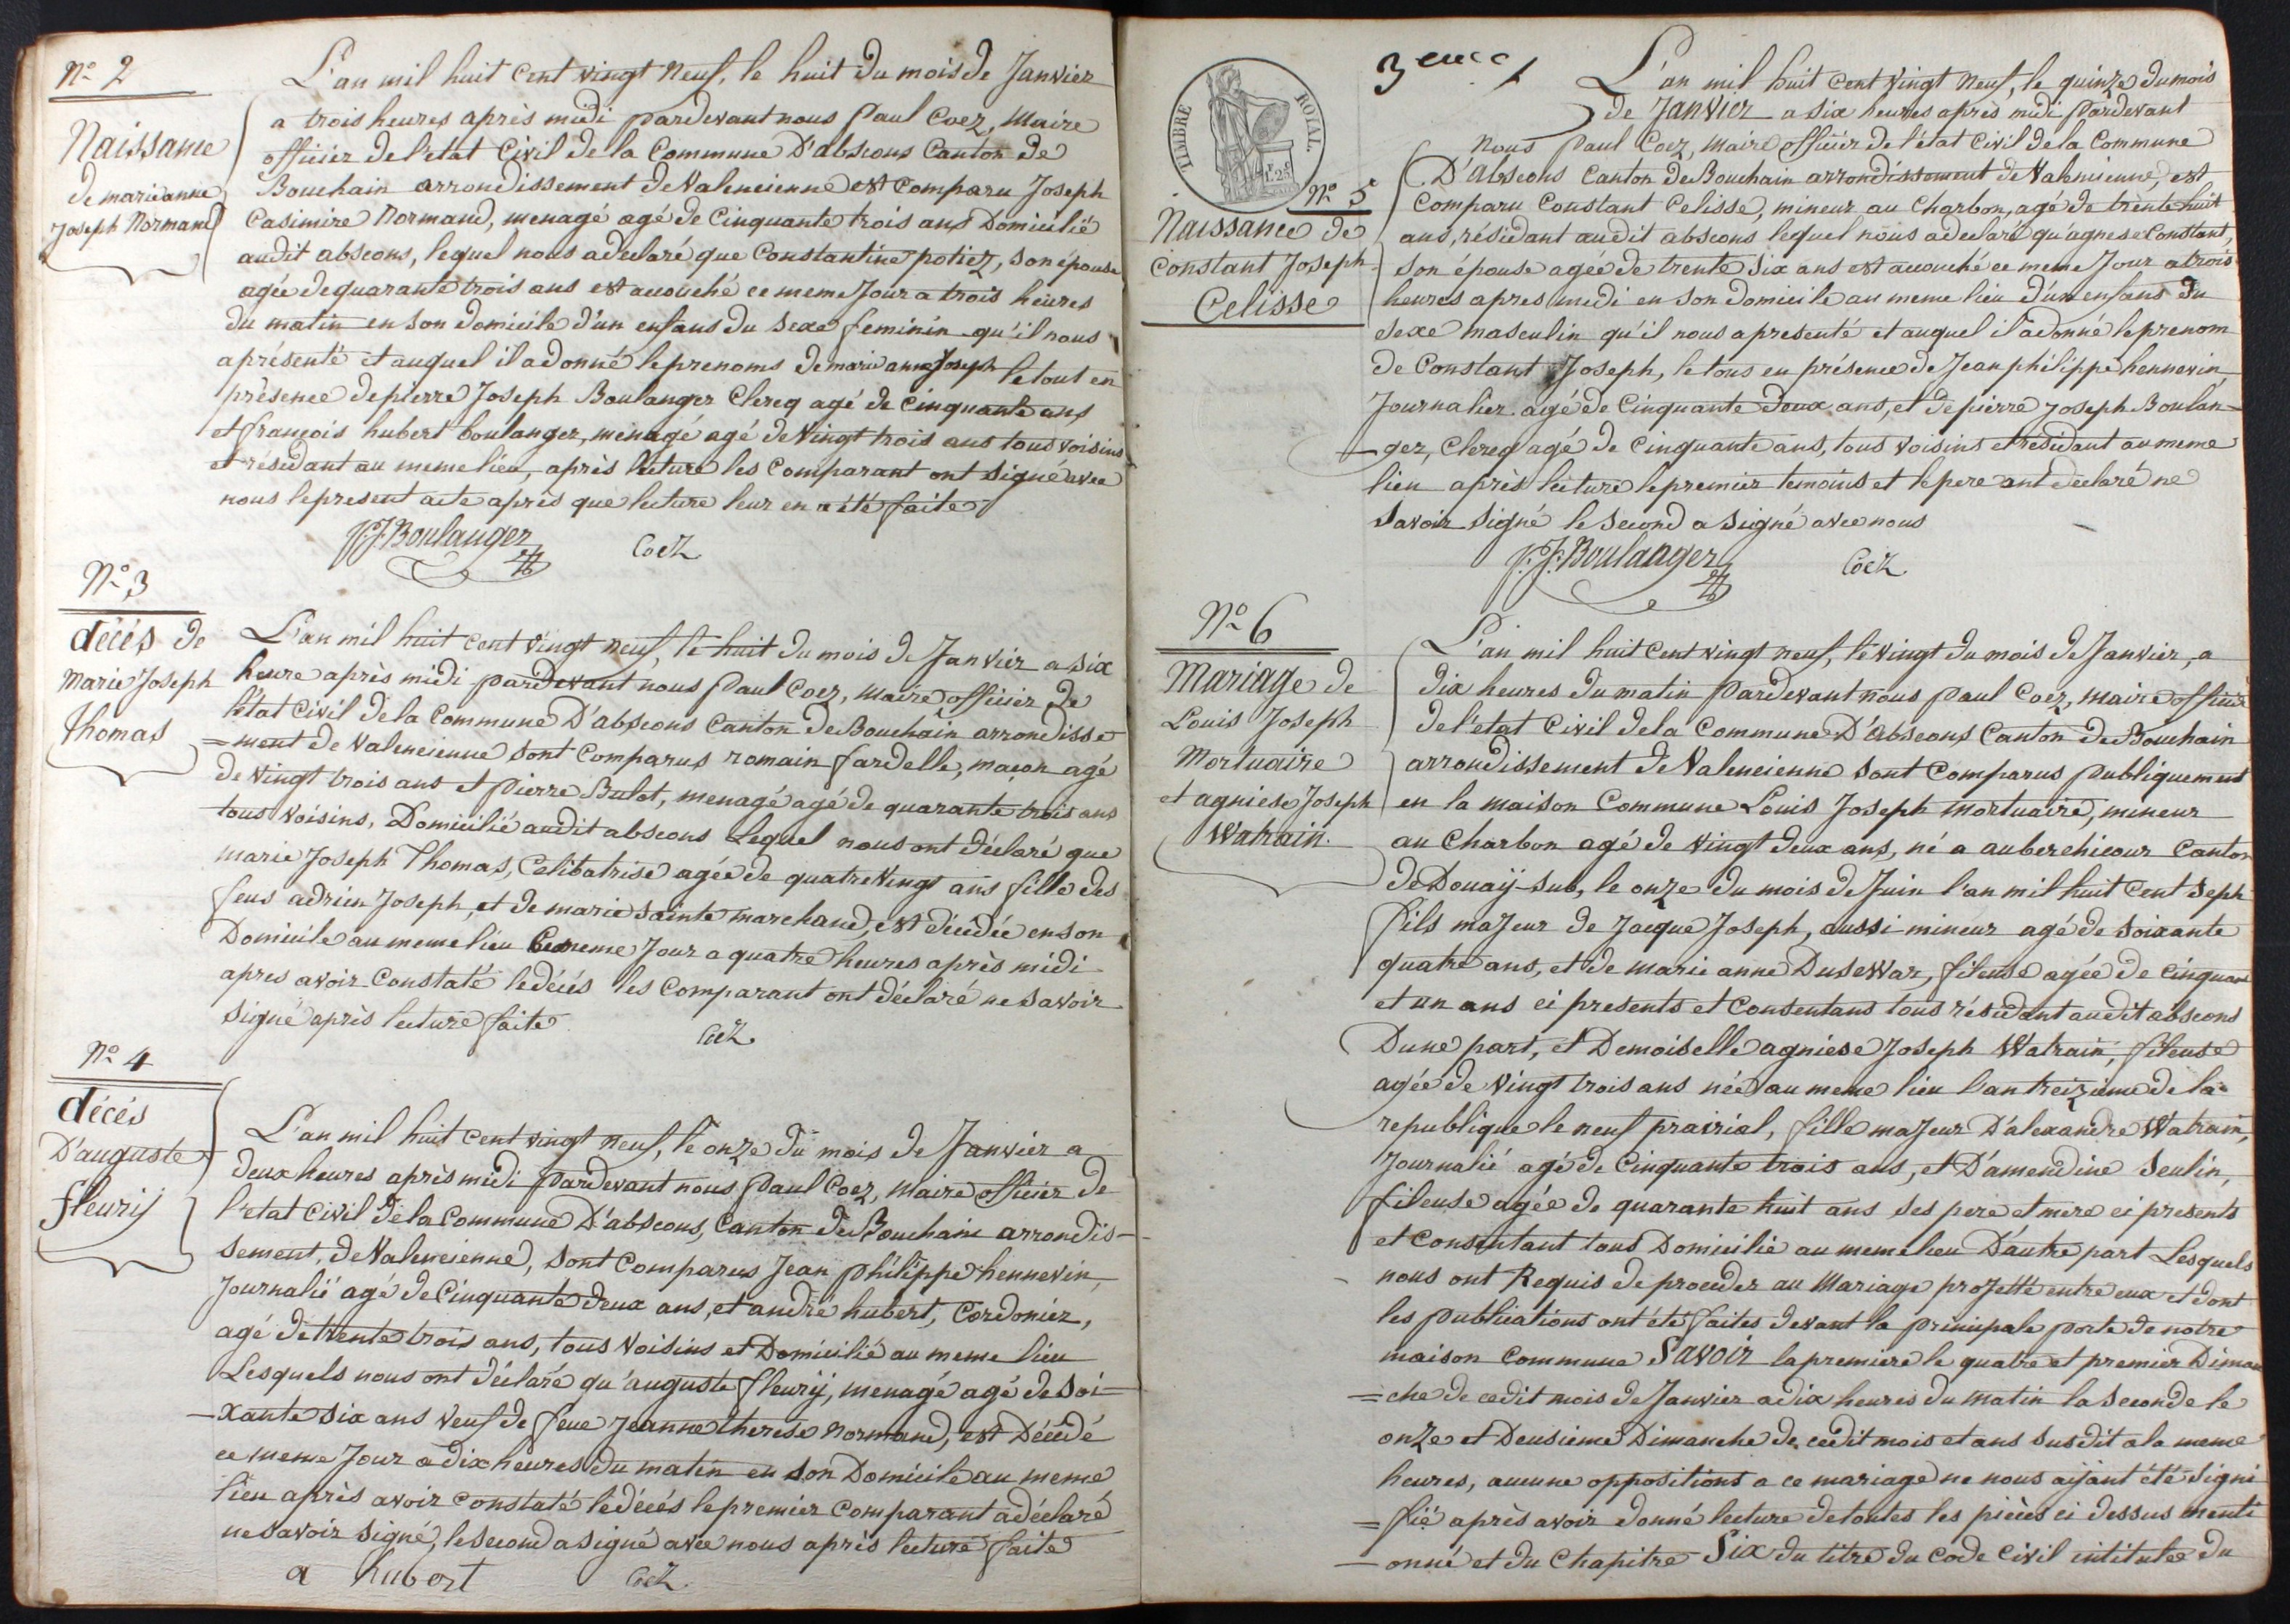 N° 2
Naissance
de marie anne
Joseph Normand
L'an mil huit cent vingt neuf, le huit du mois de Janvier
a trois heures après midi pardevant nous Paul Coez, Maire
officier de l'état Civil de la Commune D'abscons Canton de
Bouchain arrondissement de Valencienne est comparu Joseph
Casimire Normand, menagé agé de Cinquante trois ans Domicilié
audit abscons, lequel nous a declaré que Constantine potiez, son épouse
agée de quarante trois ans est accouché ce meme Jour a trois heures
du matin en son domicile d'un enfans du sexe feminin qu'il nous
a présenté et auquel il a donné le prenoms de marie anne Joseph le tout en
présence de pierre Joseph Boulanger Clercq agé de Cinquante ans
et françois hubert boulanger, menagé agé de Vingt trois ans tous voisins
et résidant au meme lieu, après lecture les Comparant ont signé avec
nous le present acte après que lecture leur en a été faite
P.J. Boulanger Coez
N° 3
décés de
Marie Joseph
Thomas
L'an mil huit cent vingt neuf, le huit du mois de Janvier a six
heure après midi pardevant nous Paul Coez, Maire officier de
l'état Civil de la Commune D'abscons Canton de Bouchain arrondisse
=ment de Valencienne sont Comparus romain fardelle, maçon agé
de vingt trois ans et pierre Bulot, menagé agé de quarante trois ans
tous voisins, Domicilié audit abscons Lequel nous ont déclaré que
marie Joseph Thomas, Celibatrise agée de quatre Vingt ans fille des
feus adrien Joseph, et de marie sainte marchand, est décédée en son
Domicile au meme lieu Ce meme Jour a quatre heures après midi
apres avoir Constaté le décés les Comparant ont déclaré ne savoir
signé après lecture faite
Coez.
N° 4
décés
D'auguste
fleurij
L'an mil huit cent vingt neuf, le onze du mois de Janvier a
deux heures après midi pardevant nous Paul Coez, Maire officier de
l'etat Civil de la Commune D'abscons, Canton de Bouchain arrondis-
sement, de Valencienne, sont Comparus Jean philippe hennevin,
Journalié agé de Cinquante deux ans, et andré hubert, Cordonier,
agé de trente trois ans, tous Voisins et Domicilié au meme lieu
Lesquels nous ont déclaré qu'auguste fleurij, menagé agé de soi=
-xante six ans veuf de feue Jeanne therese Normand, est Décédé
ce meme Jour a dix heures du matin en son Domicile au meme
lieu après avoir constaté le décés le premier Comparant a déclaré
ne savoir signé, le second a signé avec nous après lecture faite
a hubert Coez.
3eme
TIMBRE ROIAL.
N° 5
Naissance de
Constant Joseph
Celisse
L'an mil huit cent Vingt Neuf, le quinze du mois
de Janvier a six heures après midi pardevant
nous Paul Coez, Maire officier de l'état Civil de la Commune
D'Abscons Canton de Bouchain arrondissement de Valencienne, est
Comparu Constant Celisse, mineur au Charbon, agé de trente huit
ans, résidant audit abscons lequel nous a declaré qu'agnese Constant,
son épouse agée de trente six ans est accouché ce meme Jour a trois
heures apres midi en son domicile au meme lieu d'un enfans du
sexe masculin qu'il nous a presenté et auquel il a donné le prenom
de Constant Joseph, le tous en présence de Jean philippe hennevin,
Journalier agé de Cinquante deux ans, et de pierre Joseph Boulan=
-ger, Clercq agé de cinquante ans, tous voisins et residant au meme
lieu après lecture le premier temoins et le pere ont declaré ne
savoir signé le second a signé avec nous
P.J. Boulanger Coez
N° 6
Mariage de
Louis Joseph
Mortuaire
et agniese Joseph
Watrain.
L'an mil huit cent vingt neuf, le vingt du mois de Janvier, a
dix heures du matin Pardevant nous Paul Coez, Maire officier
de l'etat Civil de la Commune D'Abscons Canton de Bouchain
arrondissement de Valencienne sont Comparus publiquement
en la maison Commune Louis Joseph mortuaire, mineur
au Charbon agé de vingt deux ans, né a auberchicour Canton
de Douaij-sud, le onze du mois de Juin l'an mil huit cent seph
fils majeur de Jacque Joseph, aussi mineur agé de soixante
quatre ans, et de marie anne Dusewar, fileuse agée de cinquante
et un ans ci presents et Consentans tous résidant audit abscons
Dune part, et Demoiselle agniese Joseph Watrain, fileuse
agée de vingt trois ans née au meme lieu l'an treizieme de la
republique le neuf prairial, fille majeur D'alexandre Watrain,
Journalié agé de Cinquante trois ans, et D'amendine Seulin,
fileuse agée de quarante huit ans ses pere et mere ci presents
et Consentant tous Domicilié au meme lieu D'autre part Lesquels
nous ont Requis de proceder au Mariage projetté entre eux et dont
les publications ont été faites devant la principale porte de notre
maison Commune Savoir la premiere le quatre et premier Diman
=che de cedit mois de Janvier a dix heures du matin la seconde le
onze et Deusieme Dimanche de cedit mois et ans susdit a la meme
heures, aucune oppositions a ce mariage ne nous aijant été signi
=fié après avoir donné lecture de toutes les pièces ci dessus menti
-onné et du Chapitre Six du titre du Code Civil intitulee du